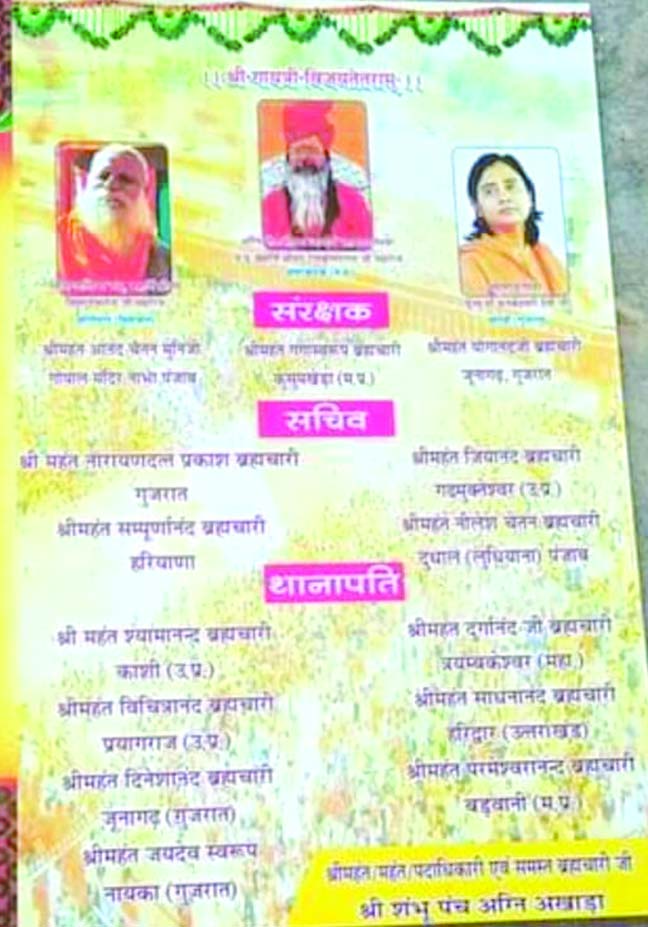 ।।श्री गायत्री विजयतेतराम्।।
संरक्षक
श्रीमहंत आनंद चेतन मुनिजी
गोपाल मंदिर नाभा पंजाब
श्रीमहंत गंगास्वरूप ब्रह्मचारी
कुसुमखेड़ा (म.प्र.)
श्रीमहंत योगानंदजी ब्रह्मचारी
जूनागढ़, गुजरात
सचिव
श्री महंत नारायणदत्त प्रकाश ब्रह्मचारी
गुजरात
श्रीमहंत सम्पूर्णानंद ब्रह्मचारी
हरियाणा
श्रीमहंत जियानंद ब्रह्मचारी
गढमुक्तेश्वर (उ.प्र.)
श्रीमहंत नीलेश चेतन ब्रह्मचारी
दुधाल (लुधियाना) पंजाब
थानापति
श्री महंत श्यामानन्द ब्रह्मचारी
काशी (उ.प्र.)
श्रीमहंत विचित्रानंद ब्रह्मचारी
प्रयागराज (उ.प्र.)
श्रीमहंत दिनेशानंद ब्रह्मचारी
जूनागढ़ (गुजरात)
श्रीमहंत जयदेव स्वरूप
नायका (गुजरात)
श्रीमहंत दुर्गानंद जी ब्रह्मचारी
त्रयम्बकेश्वर (महा.)
श्रीमहंत साधनानंद ब्रह्मचारी
हरिद्वार (उत्तराखंड)
श्रीमहंत परमेश्वरानन्द ब्रह्मचारी
बड़वानी (म.प्र.)
श्रीमहंत/महंत/पदाधिकारी एवं समस्त ब्रह्मचारी जी
श्री शंभू पंच अग्नि अखाड़ा